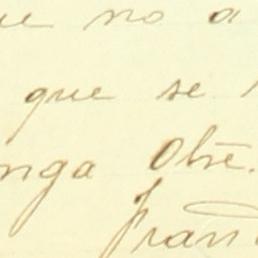 ue no a
que se
nga Obre.
Fran